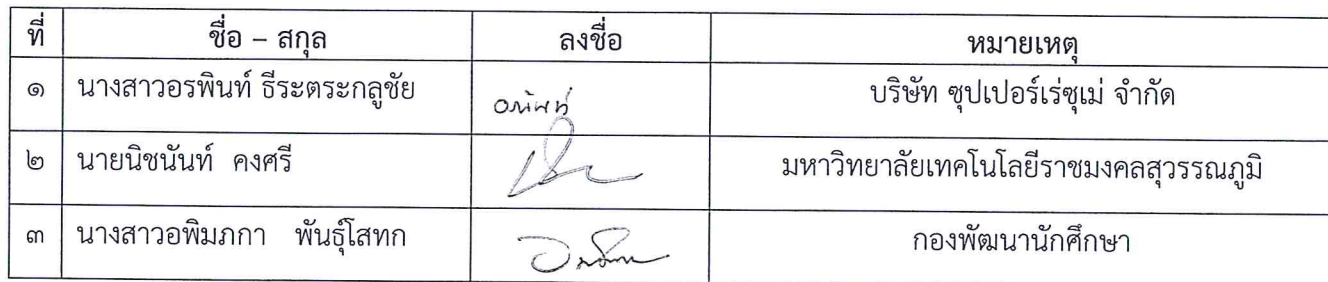 ที่ ชื่อ – สกุล ลงชื่อ หมายเหตุ
๑ นางสาวอรพินท์ ธีระตระกลูชัย อรพินท์ บริษัท ซุปเปอร์เร่ซุเม่ จำกัด
๒ นายนิชนันท์ คงศรี มหาวิทยาลัยเทคโนโลยีราชมงคลสุวรรณภูมิ
๓ นางสาวอพิมภกา พันธุ์โสทก กองพัฒนานักศึกษา